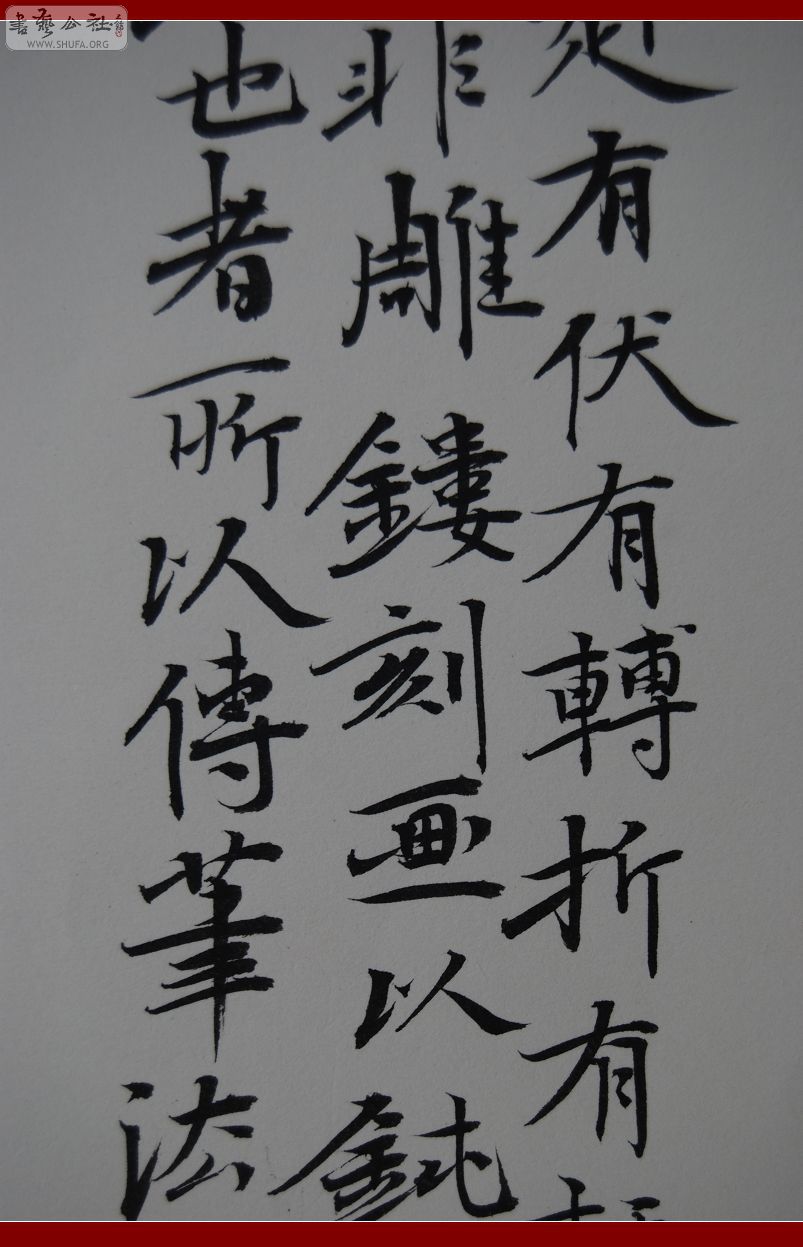 有伏有轉折有
非雕鏤刻画以鈍
也者所以傳筆法
書藝公社
WWW.SHUFA.ORG